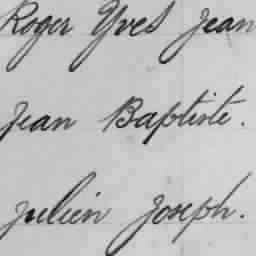 Roger Yves Jean
Jean Baptiste.
Julien Joseph.